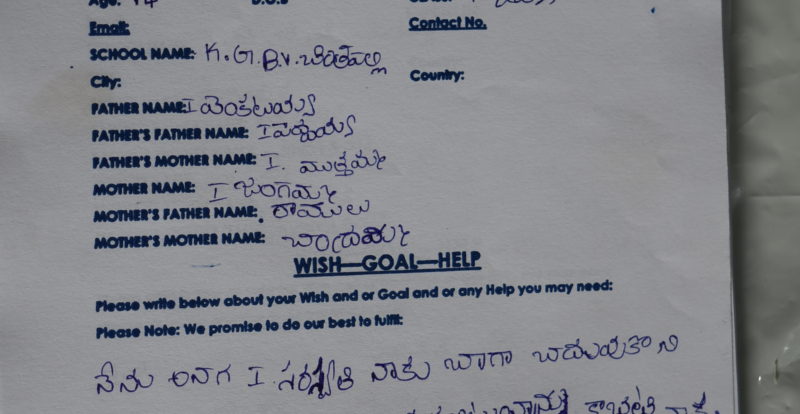 Age: 14 D.O.B
Email: Contact No.
SCHOOL NAME: K.G.B.V. చింతపల్లి
City: Country:
FATHER NAME: I వెంకటయ్య
FATHER'S FATHER NAME: I
FATHER'S MOTHER NAME: I. ముత్తమ్మ
MOTHER NAME: I జంగమ్మ
MOTHER'S FATHER NAME: రాములు
MOTHER'S MOTHER NAME:
WISH—GOAL—HELP
Please write below about your Wish and or Goal and or any Help you may need:
Please Note: We promise to do our best to fulfil:
నేను అనగ I. సరస్వతి నాకు బాగా చదువుకొని